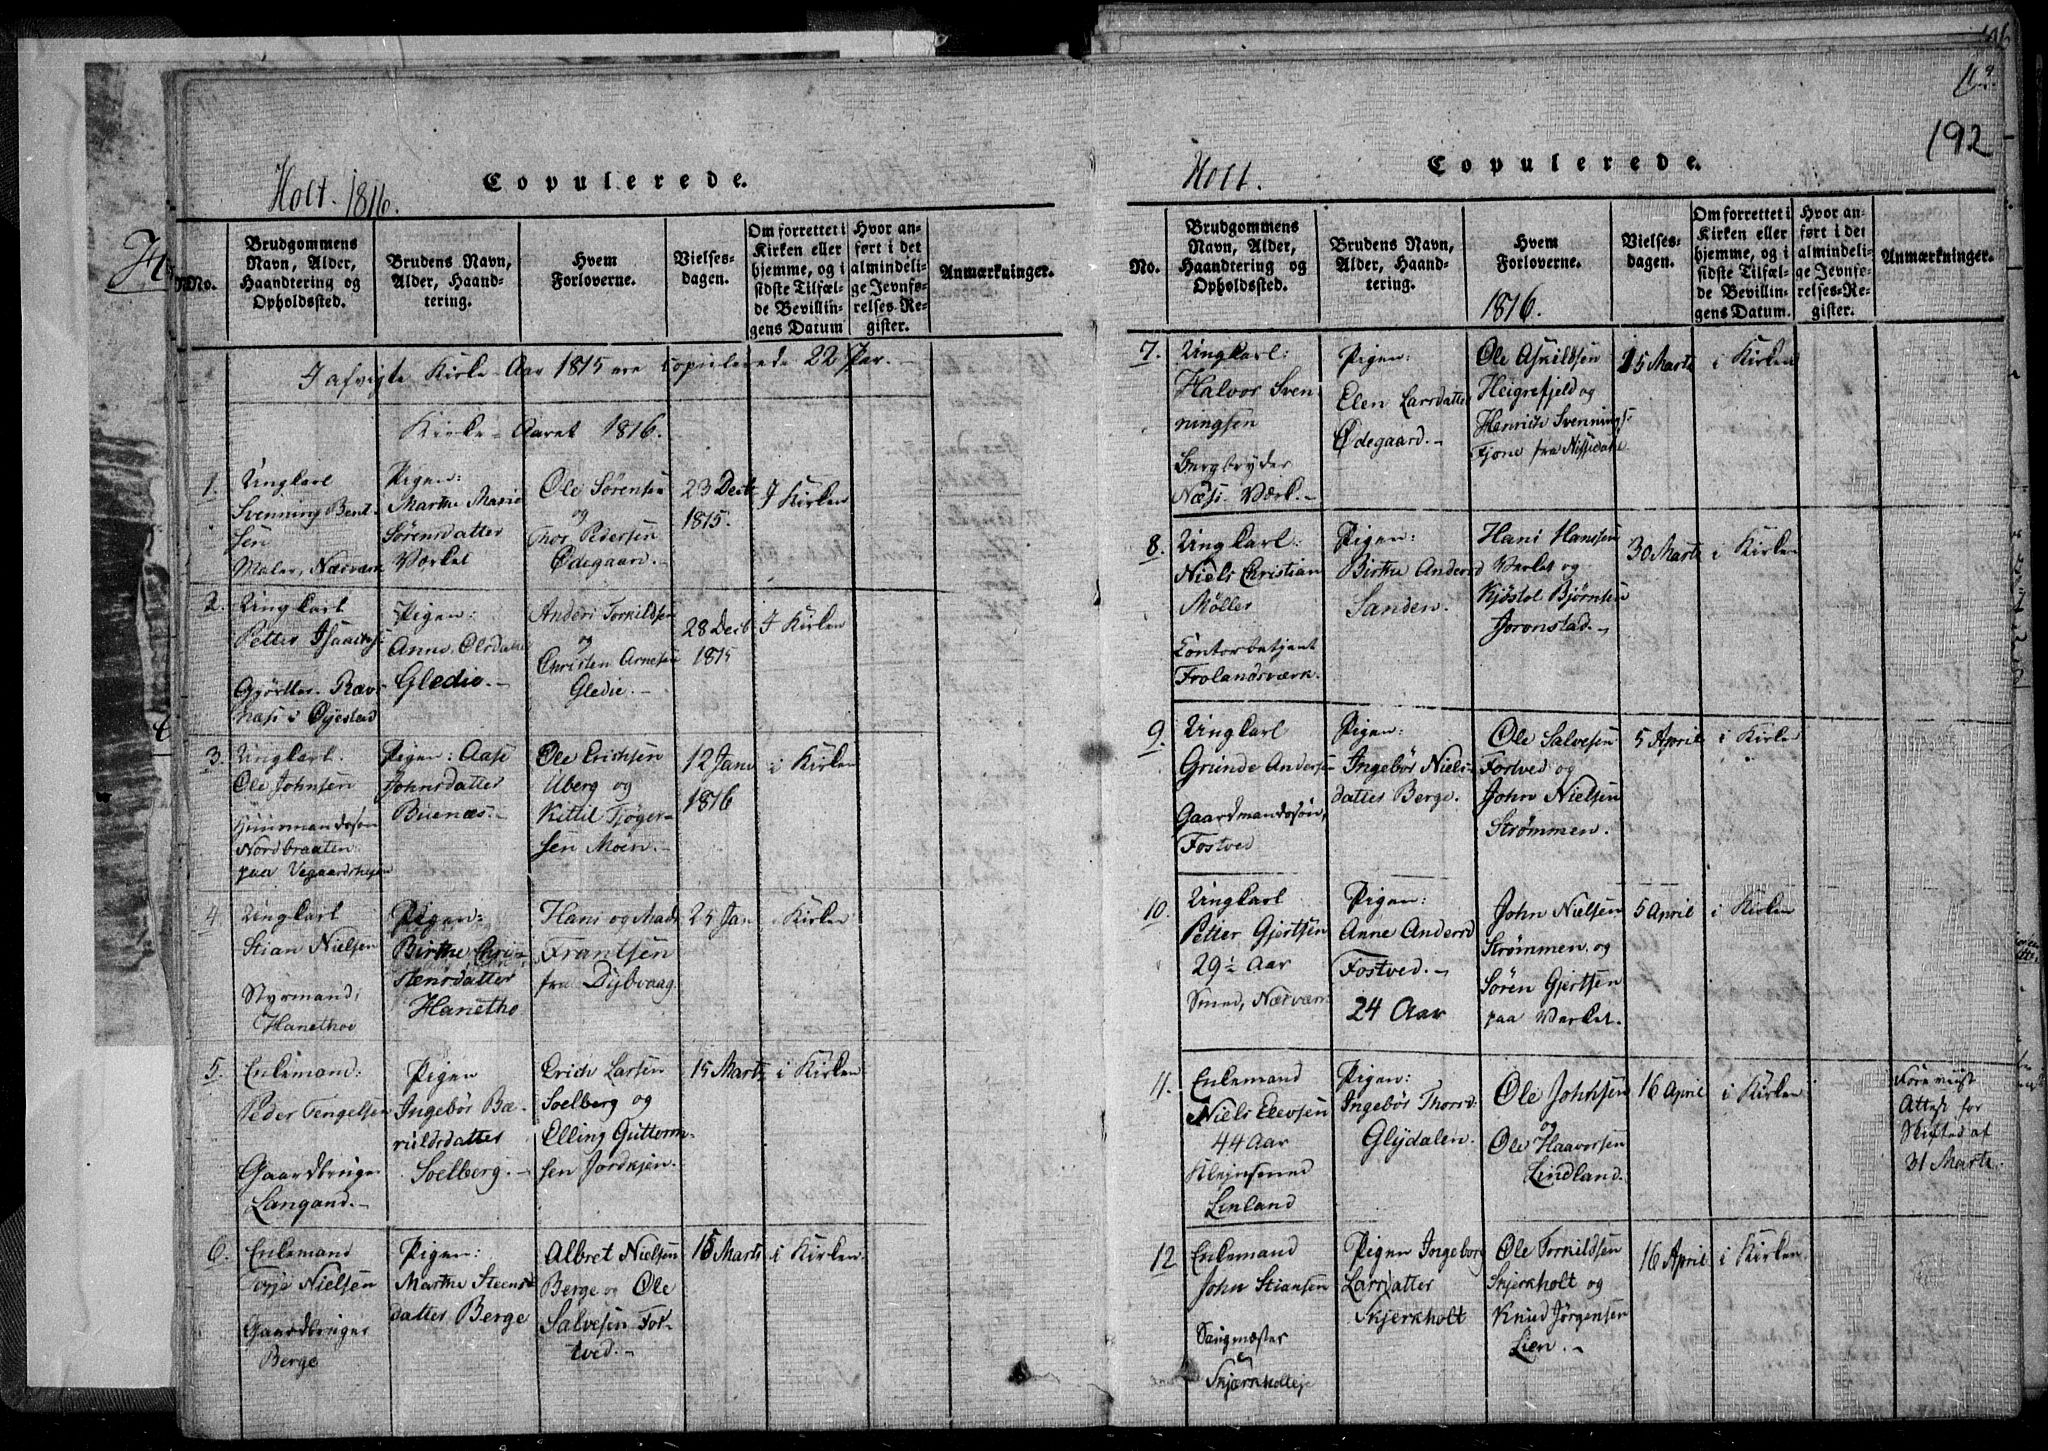 Holt. 1816.
Copulerede.
No.
Brudgommens
Navn, Alder,
Haandtering og
Opholdssted.
Brudens Navn,
Alder, Haand-
tering.
Hvem
Forloverne.
Vielses-
dagen.
Om forrettet i
Kirken eller
hjemme, og i
sidste Tilfæl-
de Bevillin-
gens Datum
Hvor an-
ført i det
almindeli-
ge Jevnfø-
relses-Re-
gister.
Anmærkninger.
I afvigte Kirke-Aar 1815 ere copulerede 22 Par.-
Kirke-Aaret 1816.
1.
Ungkarl
Svenning Bent-
sen
Maler, Næsværk
Pigen:
Marthe Marie
Sørensdatter
Værket
Ole Sørensen
og
Thor Pedersen
Ødegaard.-
23 Decb
1815.
I Kirken
2.
Ungkarl
Petter Isaachs
Gjørtler Ræv-
næs i Øyestad
Pigen:
Anne Olsdatter
Gledie.-
Anders Torkildsen
og
Christen Arnesen
Gledie.-
28 Decb
1815
I Kirken
3.
Ungkarl.
Ole Johnsen
Huusmandssøn
Nordbraaten
paa Vegaardsheien
Pigen: Aase
Johnsdatter
Buenæs.-
Ole Erichsen
Uberg og
Kittil Tjøger-
sen Moen.-
12 Janv
1816
i Kirken
4
Ungkarl
Stian Nielsen
Styrmand,
Hanethoe
Pigen:
Birthe Chri-
stensdatter
Hanetho
Hans og Mads
Frantsen
fra Dybvaag.
25 Jan
i Kirken
5.
Enkemand:
Peder Tengelsen
Gaardbruger
Langand.-
Pigen
Ingebør Bæ-
ruldsdatter
Soelberg.-
Erich Larsen
Soelberg og
Elling Guttorm-
sen Jordkjen.
15 Marts
i Kirken
6.
Enkemand
Torje Nielsen
Gaardbruger
Berge
Pigen:
Marthe Steens-
datter Berge
Albret Nielsen
Berge og Ole
Salvesen Fos-
tved.-
15 Marts
i Kirken
192
Holt.
Copulerede.
No.
Brudgommens
Navn, Alder,
Haandtering og
Opholdssted.
Brudens Navn,
Alder, Haand-
tering.
Hvem
Forloverne.
1816.
Vielses-
dagen.
Om forrettet i
Kirken eller
hjemme, og i
sidste Tilfæl-
de Bevillin-
gens Datum.
Hvor an-
ført i det
almindeli-
ge Jevnfø-
relses-Re-
gister.
Anmærkninger.
7.
Ungkarl:
Halvor Sven-
ningsen
Bergbryder
Næss Værk.-
Pigen:
Elen Larsdatter
Ødegaard.-
Ole Askildsen
Heigrefjeld og
Henrich Svennings-
Fjone fra Nissedahl
15 Marts
i Kirken
8.
Ungkarl:
Niels Christian
Møller
Contorbetjent
Frolandsværk.
Pigen:
Birthe Andersd
Sanden.
Hans Hanssen
Værket og
Kjøstol Bjørnsen
Joronstad.-
30 Marts
i Kirken
9
Ungkarl
Grunde Andersen
Gaardmandssøn,
Fostved
Pigen:
Ingebør Niels-
datter Berge.
Ole Salvesen
Fostved og
John Nielsen
Strømmen.
5 April
i Kirken
10.
Ungkarl
Petter Gjertsen
29½ Aar
Smed, Næsværk
Pigen:
Anne Andersd
Fostved.-
24 Aar
John Nielsen
Strømmen, og
Søren Gjertsen
paa Værket.
5 April
i Kirken
11.
Enkemand
Niels Elevsen
44 Aar
Kleinsmed
Linland
Pigen:
Ingebør Thorsd
Glydalen.
Ole Johnsen
og
Ole Haavorsen
Lindland.
16 April
i Kirken
Foreviist
Attest for
Skiftet af
31 Marts.
12
Enkemand
John Stiansen
Saugmæster
Skjærkholteje
Pigen Ingeborg
Larsdatter
Skjerkholt
Ole Torkildsen
Skjerkholt og
Knud Jørgensen
Lien.-
16 April
i Kirken.